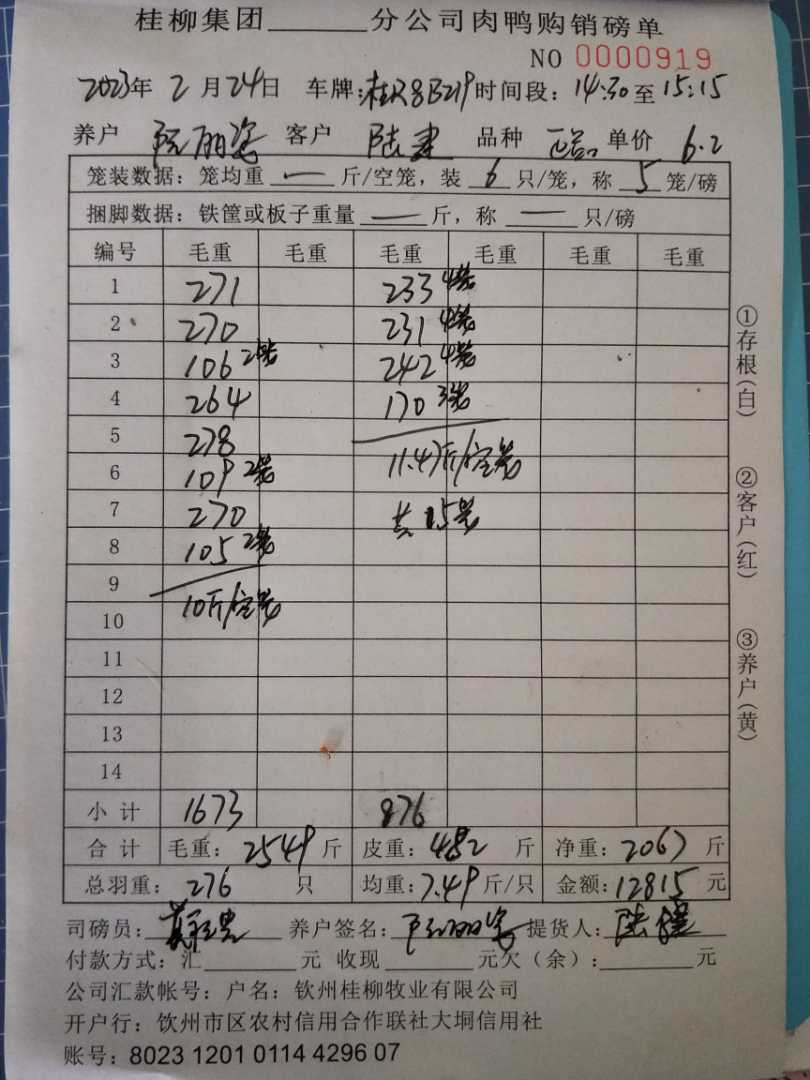 桂柳集团______分公司肉鸭购销磅单
NO 0000919
2023年 2 月 24日 车牌:桂R8B219 时间段: 14:30 至 15:15
养户 阮丽姿 客户 陆建 品种 正品 单价 6.2
笼装数据: 笼均重 — 斤/空笼, 装 6 只/笼, 称 5 笼/磅
捆脚数据: 铁筐或板子重量 — 斤, 称 — 只/磅
编号 毛重 毛重 毛重 毛重 毛重 毛重
1 271 233 4笼
2 270 231 4笼
3 106 2笼 242 4笼
4 264 170 3笼
5 278
6 109 2笼 11.47斤/空笼
7 270 共15笼
8 105 2笼
9
10 10斤/空笼
11
12
13
14
小计 1673 876
合计 毛重: 2549 斤 皮重: 482 斤 净重: 2067 斤
总羽重: 276 只 均重: 7.49 斤/只 金额: 12815 元
司磅员: 养户签名: 阮丽姿 提货人: 陆建
付款方式: 汇______元 收现______元欠(余):______元
公司汇款帐号: 户名: 钦州桂柳牧业有限公司
开户行: 饮州市区农村信用合作联社大垌信用社
账号: 8023 1201 0114 4296 07
①存根(白)
②客户(红)
③养户(黄)